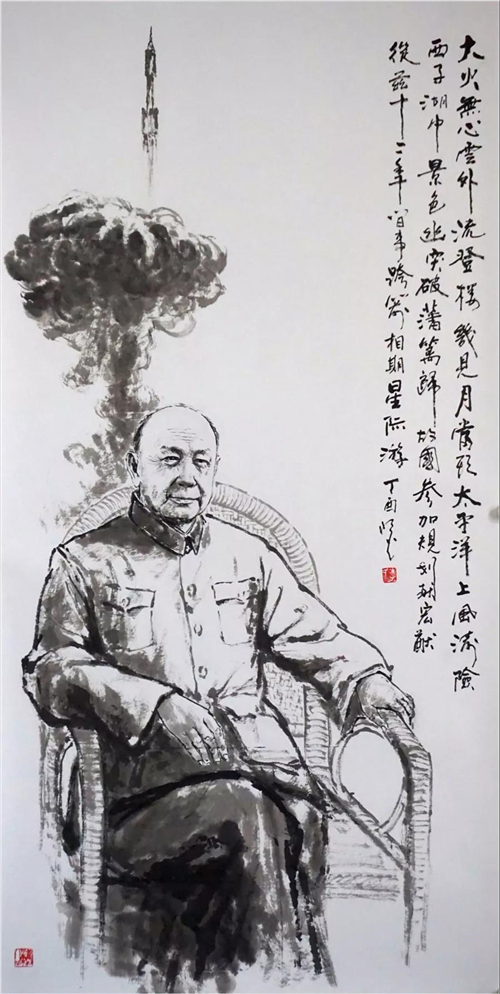 大火無心雲外流登楼幾見月當頭太平洋上風涛險
西子湖中景色幽突破藩篱歸故國參加規划献宏猷
從兹十二年间事跨箭相期星际游 丁酉